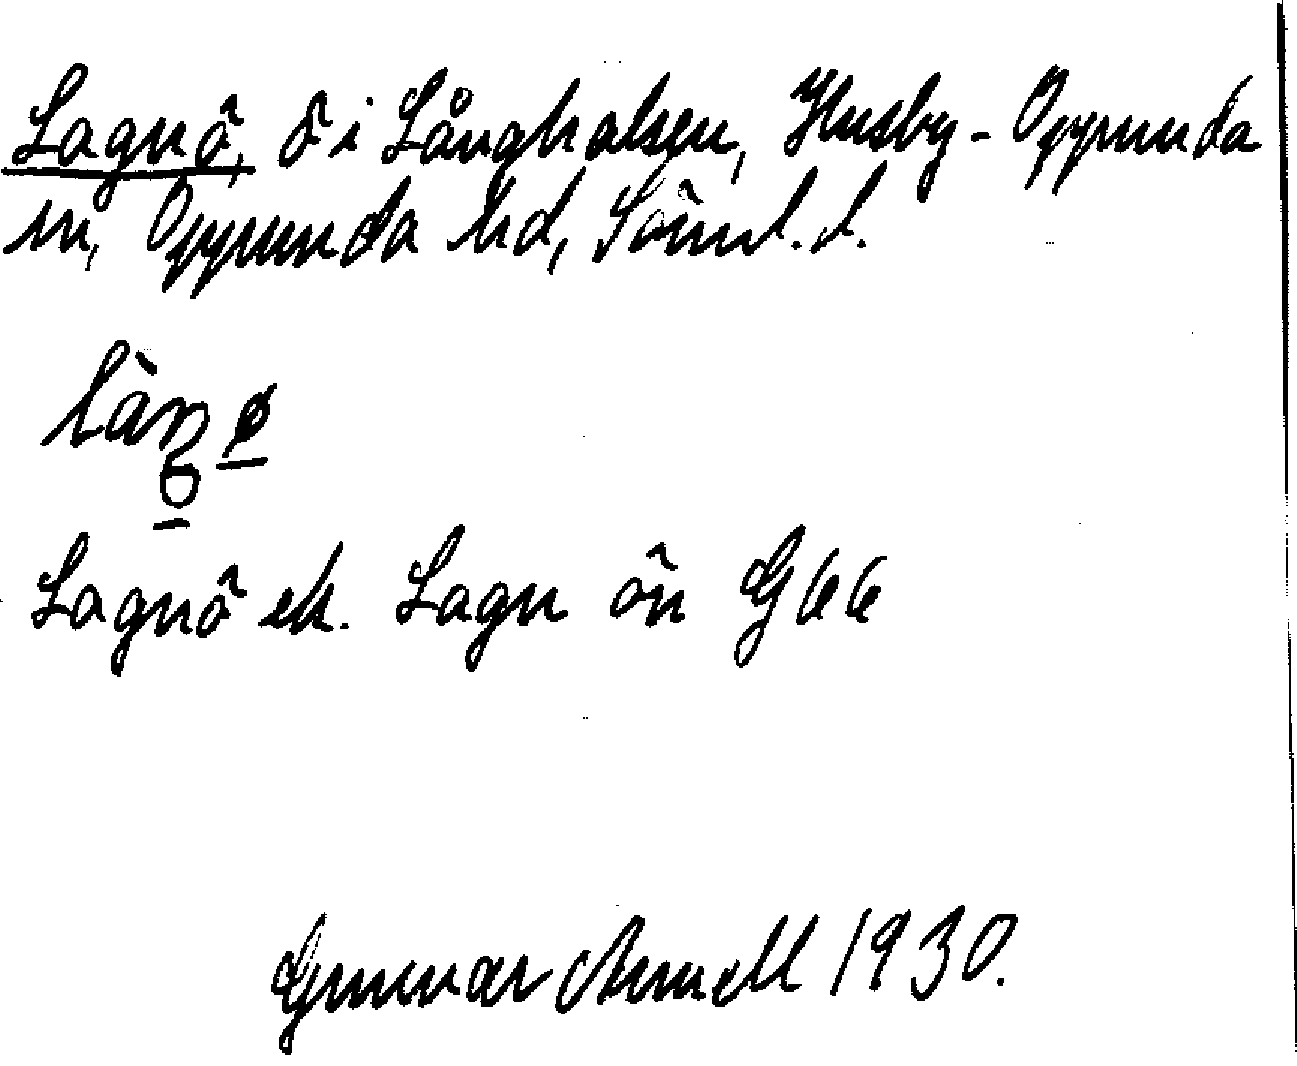 Lagnö, ö i Långhalsen, Husby-Oppunda
sn, Oppunda hd, Söml. l.
Lagnö ek. Lagn ön G 66
Gunnar Arnell 1930.